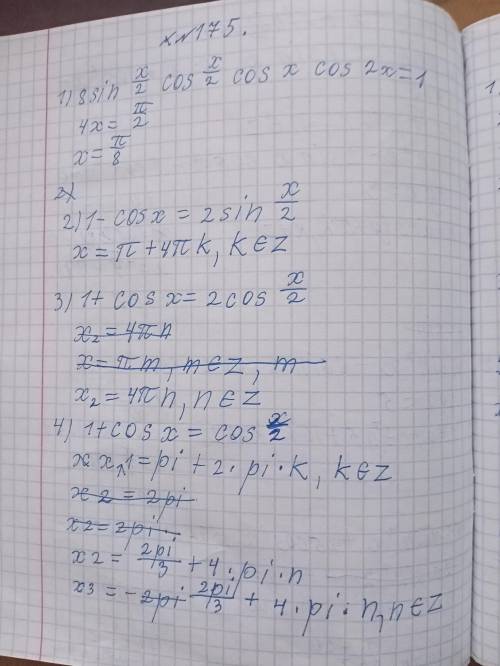 №175.
1) 8sin x/2 cos x/2 cos x cos 2x=1
4x= π/2
x= π/8
2)
2) 1-cosx = 2sin x/2
x= π+4πk, k∈Z
3) 1+ cos x= 2cos x/2
x₂ = 4πn
x= πm, n∈Z, m
x₂ = 4πn, n∈Z
4) 1+cos x = cos x/2
x 1=pi + 2·pi·k, k∈Z
x 2 = 2pi
x2= 2pi.
x2= 2pi/3 +4·pi·n
x3 = - 2pi 2pi/3 + 4·pi·n, n∈Z